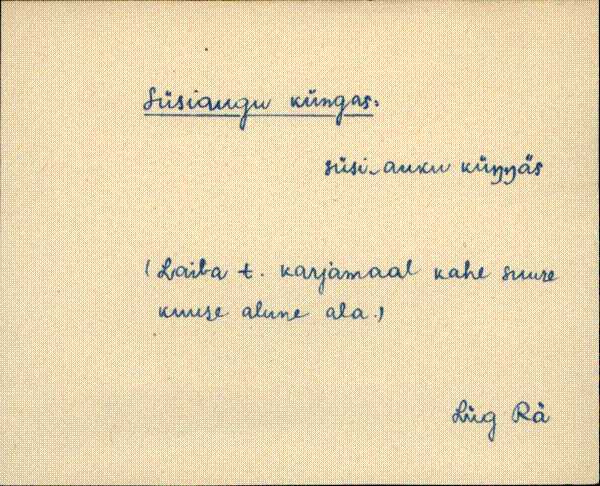 Süsiaugu küngas.
süsi-auku küŋŋäs
(Laiba t. karjamaal kahe suure
kuuse alune ala.)
Lüg Rä